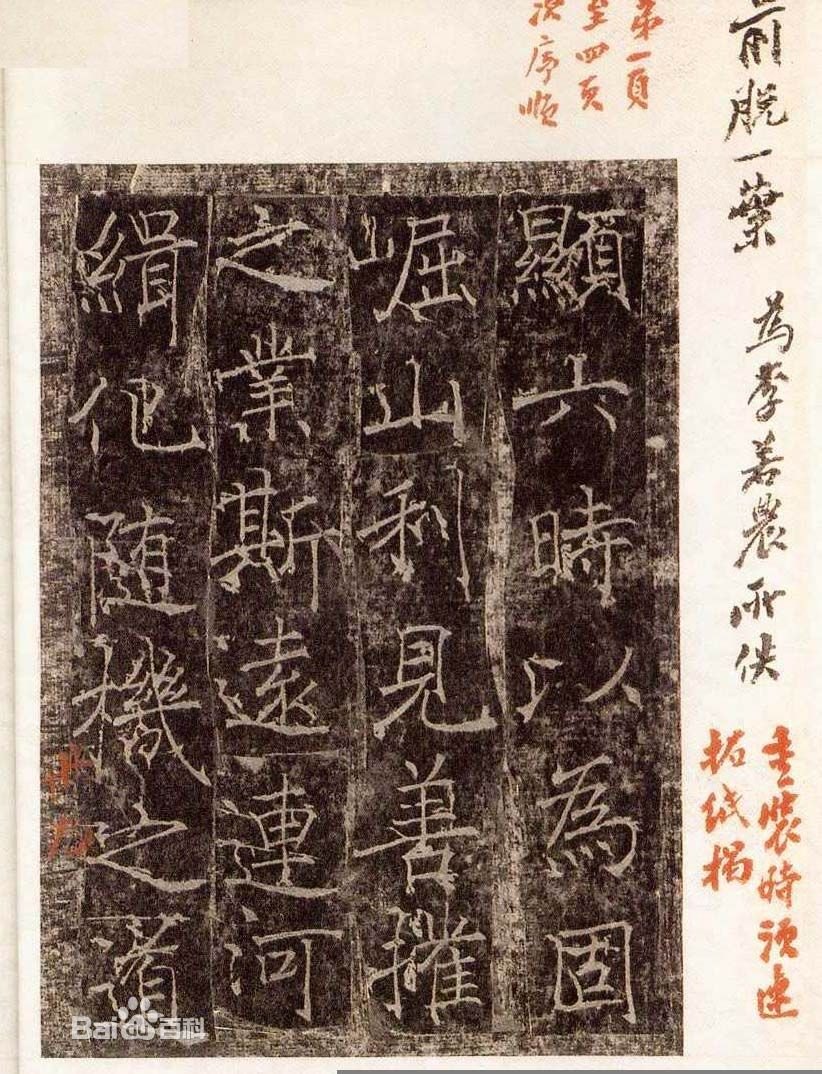 前脱一葉 為李若農所佚
重裝時須連
拓紙揭
第一頁
至四頁
次序順
顯六時以為固
崛山利見善權
之業斯遠連河
緝化随機之道
Bai百科